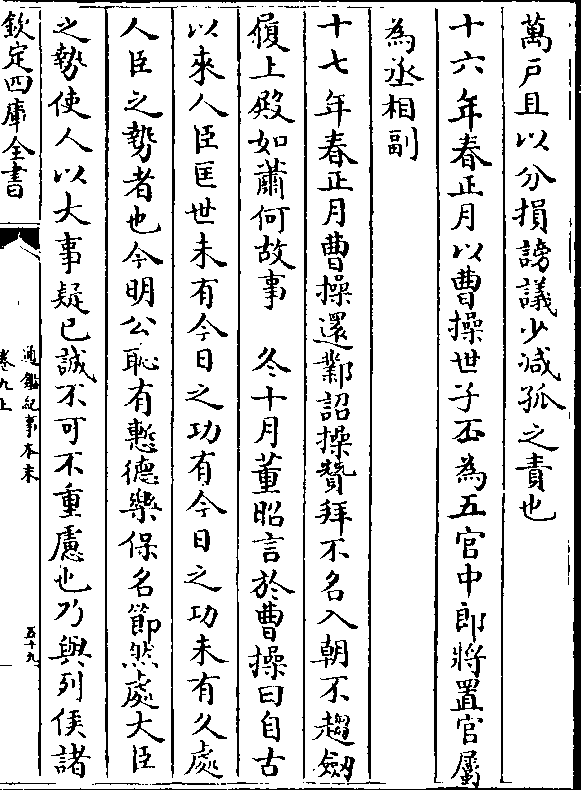 萬戸且以分損謗議少減孤之責也
十六年春正月以曹操世子丕為五官中郎將置官屬
為丞相副
十七年春正月曹操還鄴詔操贊拜不名入朝不趨劒
履上殿如蕭何故事　冬十月董昭言於曹操曰自古
以來人臣匡世未有今日之功有今日之功未有久處
人臣之勢者也今明公恥有慙德樂保名節然處大臣
之勢使人以大事疑已誠不可不重慮也乃與列侯諸
欽定四庫全書
通鑑紀事本末
卷九上
五十九